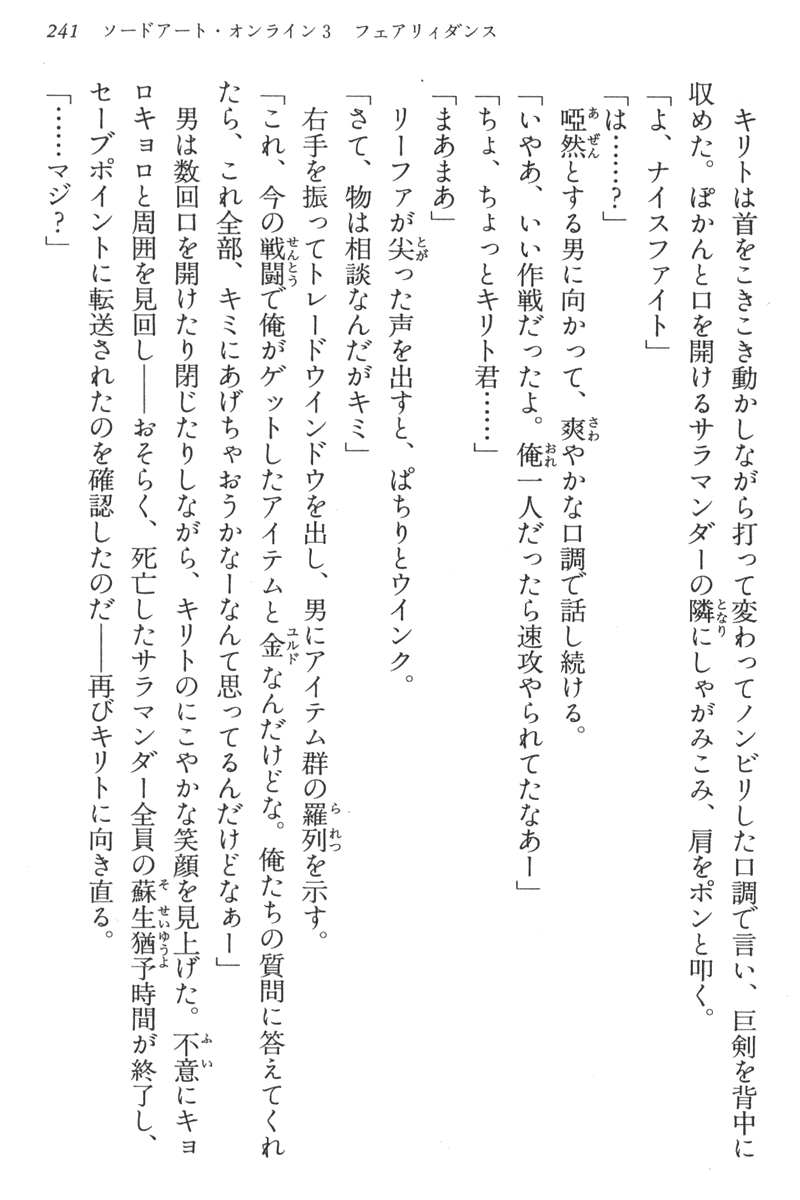 241 ソードアート・オンライン3 フェアリィダンス
キリトは首をこきこき動かしながら打って変わってノンビリした口調で言い、巨剣を背中に
収めた。ぽかんと口を開けるサラマンダーの隣にしゃがみこみ、肩をポンと叩く。
「よ、ナイスファイト」
「は……？」
唖然とする男に向かって、爽やかな口調で話し続ける。
「いやあ、いい作戦だったよ。俺一人だったら速攻やられてたなあー」
「ちょ、ちょっとキリト君……」
「まあまあ」
リーファが尖った声を出すと、ぱちりとウインク。
「さて、物は相談なんだがキミ」
右手を振ってトレードウインドウを出し、男にアイテム群の羅列を示す。
「これ、今の戦闘で俺がゲットしたアイテムと金なんだけどな。俺たちの質問に答えてくれ
たら、これ全部、キミにあげちゃおうかなーなんて思ってるんだけどなぁー」
男は数回口を開けたり閉じたりしながら、キリトのにこやかな笑顔を見上げた。不意にキョ
ロキョロと周囲を見回し――おそらく、死亡したサラマンダー全員の蘇生猶予時間が終了し、
セーブポイントに転送されたのを確認したのだ――再びキリトに向き直る。
「……マジ？」